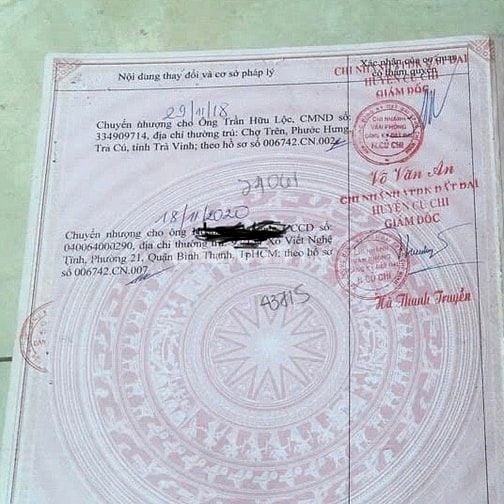 Nội dung thay đổi và cơ sở pháp lý
Xác nhận của cơ quan
có thẩm quyền
CHI NHÁNH ĐẤT ĐAI
HUYỆN CỦ CHI
GIÁM ĐỐC
29/11/18
Chuyển nhượng cho Ông Trần Hữu Lộc, CMND số:
334909714, địa chỉ thường trú: Chợ Trên, Phước Hưng,
Trà Cú, tỉnh Trà Vinh; theo hồ sơ số 006742.CN.002
CHI NHÁNH
VĂN PHÒNG
ĐĂNG KÝ ĐẤT ĐAI
H.CỦ CHI
Võ Văn An
CHI NHÁNH VPĐK ĐẤT ĐAI
HUYỆN CỦ CHI
GIÁM ĐỐC
18/11/2020
Chuyển nhượng cho ông CCCD số:
040064000290, địa chỉ thường Xô Viết Nghệ
Tĩnh, Phường 21, Quận Bình Thạnh, TpHCM; theo hồ sơ
số 006742.CN.007
CHI NHÁNH
VĂN PHÒNG
H.CỦ CHI
43815
Hà Thanh Truyền